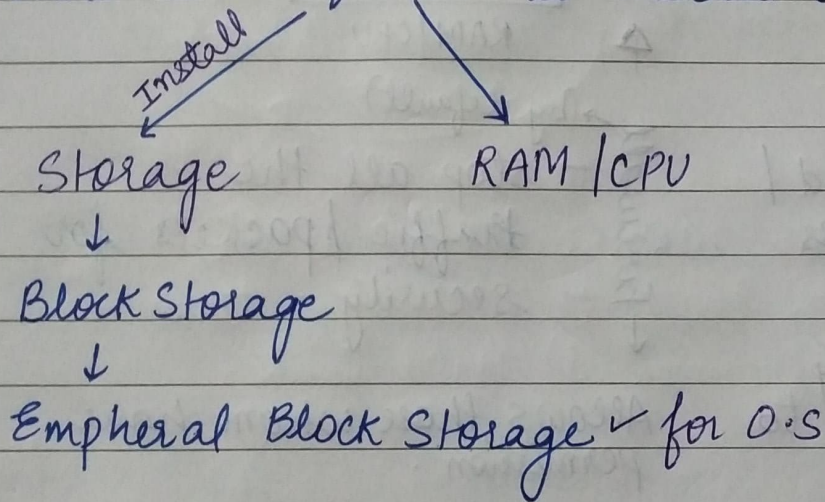 Install
Storage RAM/CPU
↓
Block Storage
↓
Empheral Block Storage ✓ for O.S